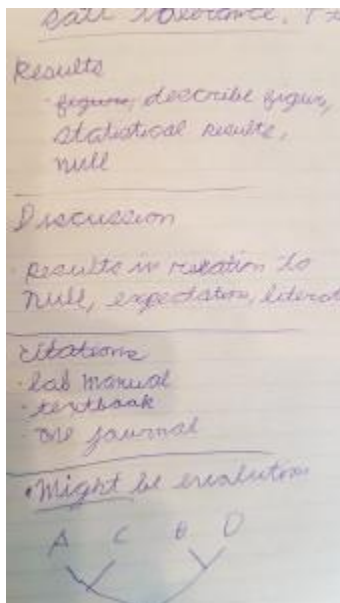 salt tolerance,
Results
· figure, describe figur,
statistical results,
null
Discussion
· Results in relation to
null, expectation, literat
citations
· lab manual
· textbook
· one journal
• Might be evolution
A C B D